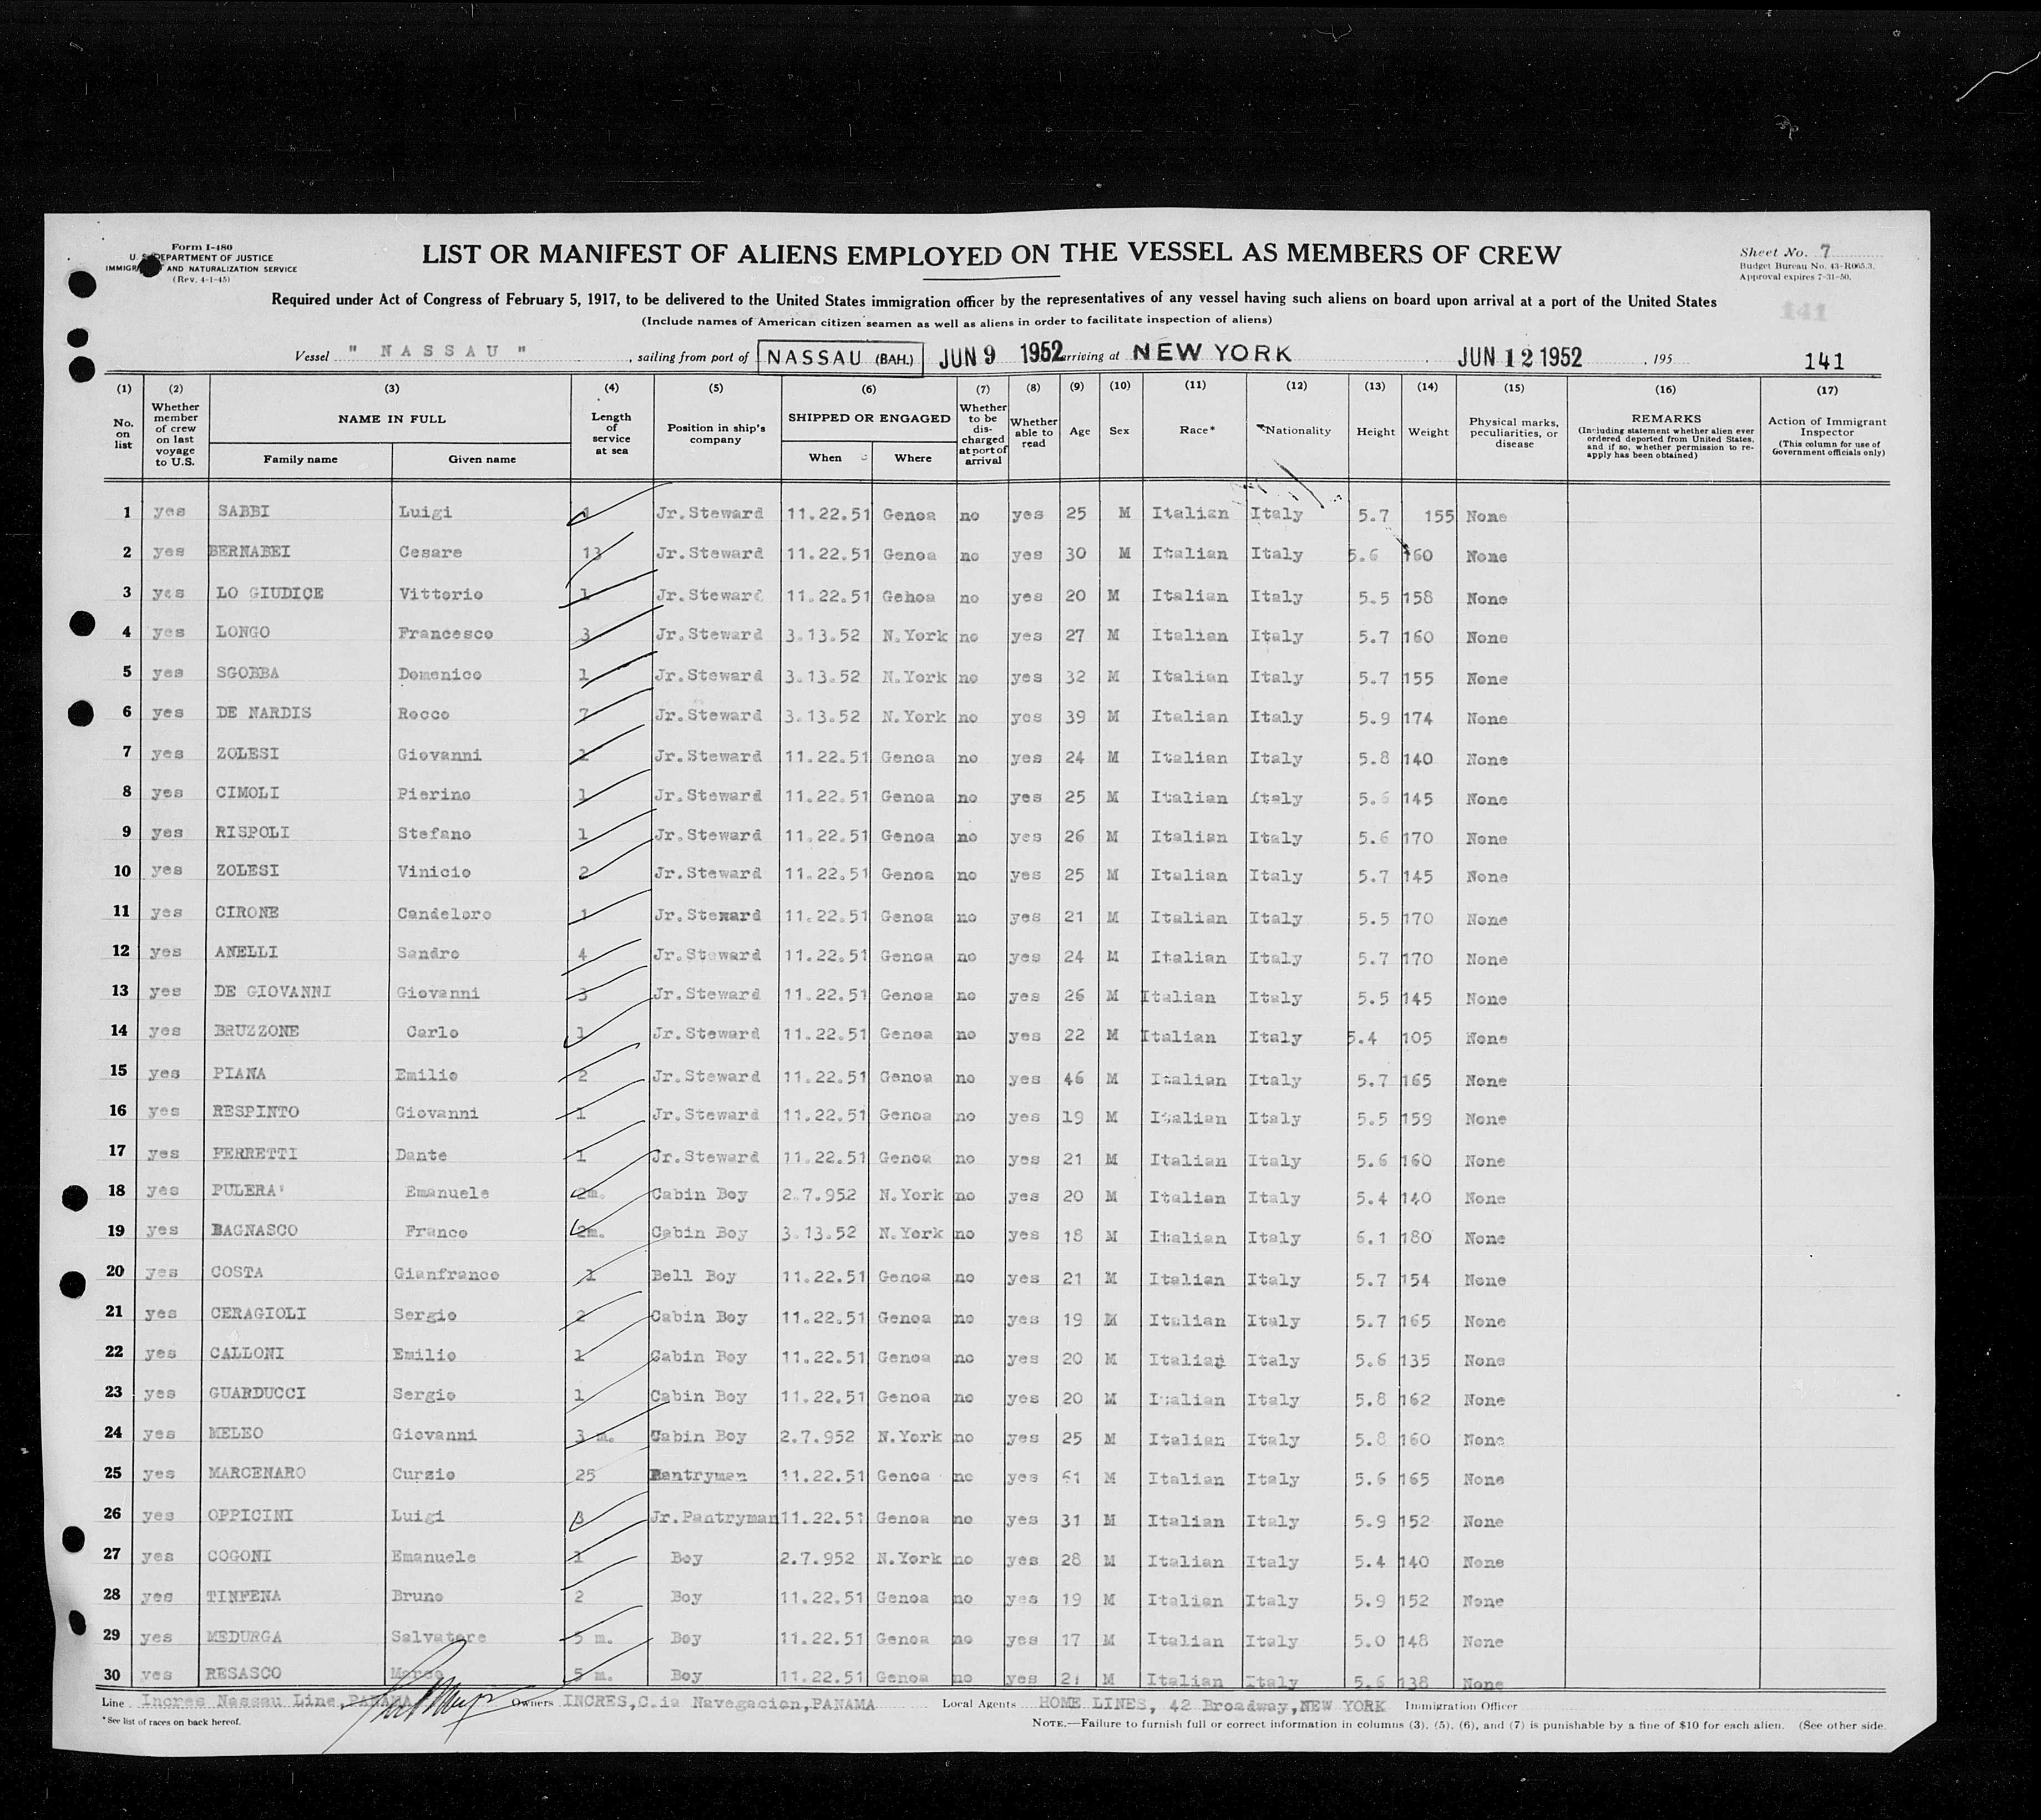 Form I-480
U. S. DEPARTMENT OF JUSTICE
IMMIGRATION AND NATURALIZATION SERVICE
(Rev. 4-1-45)
LIST OR MANIFEST OF ALIENS EMPLOYED ON THE VESSEL AS MEMBERS OF CREW
Sheet No. 7
Budget Bureau No. 43-R065.3.
Approval expires 7-31-50.
Required under Act of Congress of February 5, 1917, to be delivered to the United States immigration officer by the representatives of any vessel having such aliens on board upon arrival at a port of the United States
141
(Include names of American citizen seamen as well as aliens in order to facilitate inspection of aliens)
Vessel " NASSAU " , sailing from port of NASSAU (BAH.) JUN 9 1952 arriving at NEW YORK JUN 12 1952 , 195 141
(1) (2) (3) (4) (5) (6) (7) (8) (9) (10) (11) (12) (13) (14) (15) (16) (17)
No. on list
Whether member of crew on last voyage to U.S.
NAME IN FULL
Family name
Given name
Length of service at sea
Position in ship's company
SHIPPED OR ENGAGED
When
Where
Whether to be discharged at port of arrival
Whether able to read
Age
Sex
Race*
Nationality
Height
Weight
Physical marks, peculiarities, or disease
REMARKS
(Including statement whether alien ever ordered deported from United States, and if so, whether permission to reapply has been obtained)
Action of Immigrant Inspector
(This column for use of Government officials only)
1 yes SABBI Luigi 1 Jr.Steward 11.22.51 Genoa no yes 25 M Italian Italy 5.7 155 None
2 yes BERNABEI Cesare 13 Jr.Steward 11.22.51 Genoa no yes 30 M Italian Italy 5.6 160 None
3 yes LO GIUDICE Vittorio 1 Jr.Steward 11.22.51 Genoa no yes 20 M Italian Italy 5.5 158 None
4 yes LONGO Francesco 3 Jr.Steward 3.13.52 N.York no yes 27 M Italian Italy 5.7 160 None
5 yes SGOBBA Domenico 1 Jr.Steward 3.13.52 N.York no yes 32 M Italian Italy 5.7 155 None
6 yes DE NARDIS Rocco 7 Jr.Steward 3.13.52 N.York no yes 39 M Italian Italy 5.9 174 None
7 yes ZOLESI Giovanni 1 Jr.Steward 11.22.51 Genoa no yes 24 M Italian Italy 5.8 140 None
8 yes CIMOLI Pierino 1 Jr.Steward 11.22.51 Genoa no yes 25 M Italian Italy 5.6 145 None
9 yes RISPOLI Stefano 1 Jr.Steward 11.22.51 Genoa no yes 26 M Italian Italy 5.6 170 None
10 yes ZOLESI Vinicio 2 Jr.Steward 11.22.51 Genoa no yes 25 M Italian Italy 5.7 145 None
11 yes CIRONE Candeloro 1 Jr.Steward 11.22.51 Genoa no yes 21 M Italian Italy 5.5 170 None
12 yes ANELLI Sandro 4 Jr.Steward 11.22.51 Genoa no yes 24 M Italian Italy 5.7 170 None
13 yes DE GIOVANNI Giovanni 3 Jr.Steward 11.22.51 Genoa no yes 26 M Italian Italy 5.5 145 None
14 yes BRUZZONE Carlo 1 Jr.Steward 11.22.51 Genoa no yes 22 M Italian Italy 5.4 105 None
15 yes PIANA Emilio 2 Jr.Steward 11.22.51 Genoa no yes 46 M Italian Italy 5.7 165 None
16 yes RESPINTO Giovanni 1 Jr.Steward 11.22.51 Genoa no yes 19 M Italian Italy 5.5 159 None
17 yes FERRETTI Dante 1 Jr.Steward 11.22.51 Genoa no yes 21 M Italian Italy 5.6 160 None
18 yes PULERA' Emanuele 2m. Cabin Boy 2.7.952 N.York no yes 20 M Italian Italy 5.4 140 None
19 yes BAGNASCO Franco 2m. Cabin Boy 3.13.52 N.York no yes 18 M Italian Italy 6.1 180 None
20 yes COSTA Gianfranco 1 Bell Boy 11.22.51 Genoa no yes 21 M Italian Italy 5.7 154 None
21 yes CERAGIOLI Sergio 2 Cabin Boy 11.22.51 Genoa no yes 19 M Italian Italy 5.7 165 None
22 yes CALLONI Emilio 1 Cabin Boy 11.22.51 Genoa no yes 20 M Italian Italy 5.6 135 None
23 yes GUARDUCCI Sergio 1 Cabin Boy 11.22.51 Genoa no yes 20 M Italian Italy 5.8 162 None
24 yes MELEO Giovanni 3 m. Cabin Boy 2.7.952 N.York no yes 25 M Italian Italy 5.8 160 None
25 yes MARCENARO Curzio 25 Pantryman 11.22.51 Genoa no yes 61 M Italian Italy 5.6 165 None
26 yes OPPICINI Luigi 3 Jr.Pantryman 11.22.51 Genoa no yes 31 M Italian Italy 5.9 152 None
27 yes COGONI Emanuele 1 Boy 2.7.952 N.York no yes 28 M Italian Italy 5.4 140 None
28 yes TINFENA Bruno 2 Boy 11.22.51 Genoa no yes 19 M Italian Italy 5.9 152 None
29 yes MEDURGA Salvatore 5 m. Boy 11.22.51 Genoa no yes 17 M Italian Italy 5.0 148 None
30 yes RESASCO Marco 5 m. Boy 11.22.51 Genoa no yes 21 M Italian Italy 5.6 138 None
Line Incres Nassau Line,PANAMA Owners INCRES,C.ia Navegacion,PANAMA Local Agents HOME LINES, 42 Broadway,NEW YORK Immigration Officer
*See list of races on back hereof.
NOTE.—Failure to furnish full or correct information in columns (3), (5), (6), and (7) is punishable by a fine of $10 for each alien. (See other side.